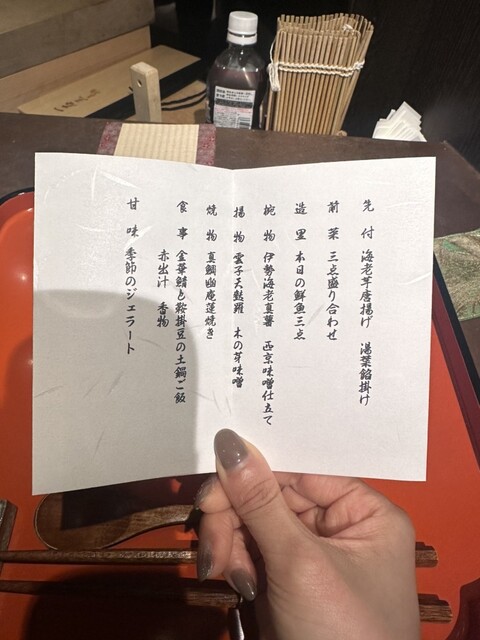 先付 海老芋唐揚げ 湯葉餡掛け
前菜 三点盛り合わせ
造里 本日の鮮魚三点
椀物 伊勢海老真薯 西京味噌仕立て
揚物 雲子天麩羅 木の芽味噌
焼物 真鯛幽庵蓮焼き
食事 金華鯖と鞍掛豆の土鍋ご飯
赤出汁 香物
甘味 季節のジェラート